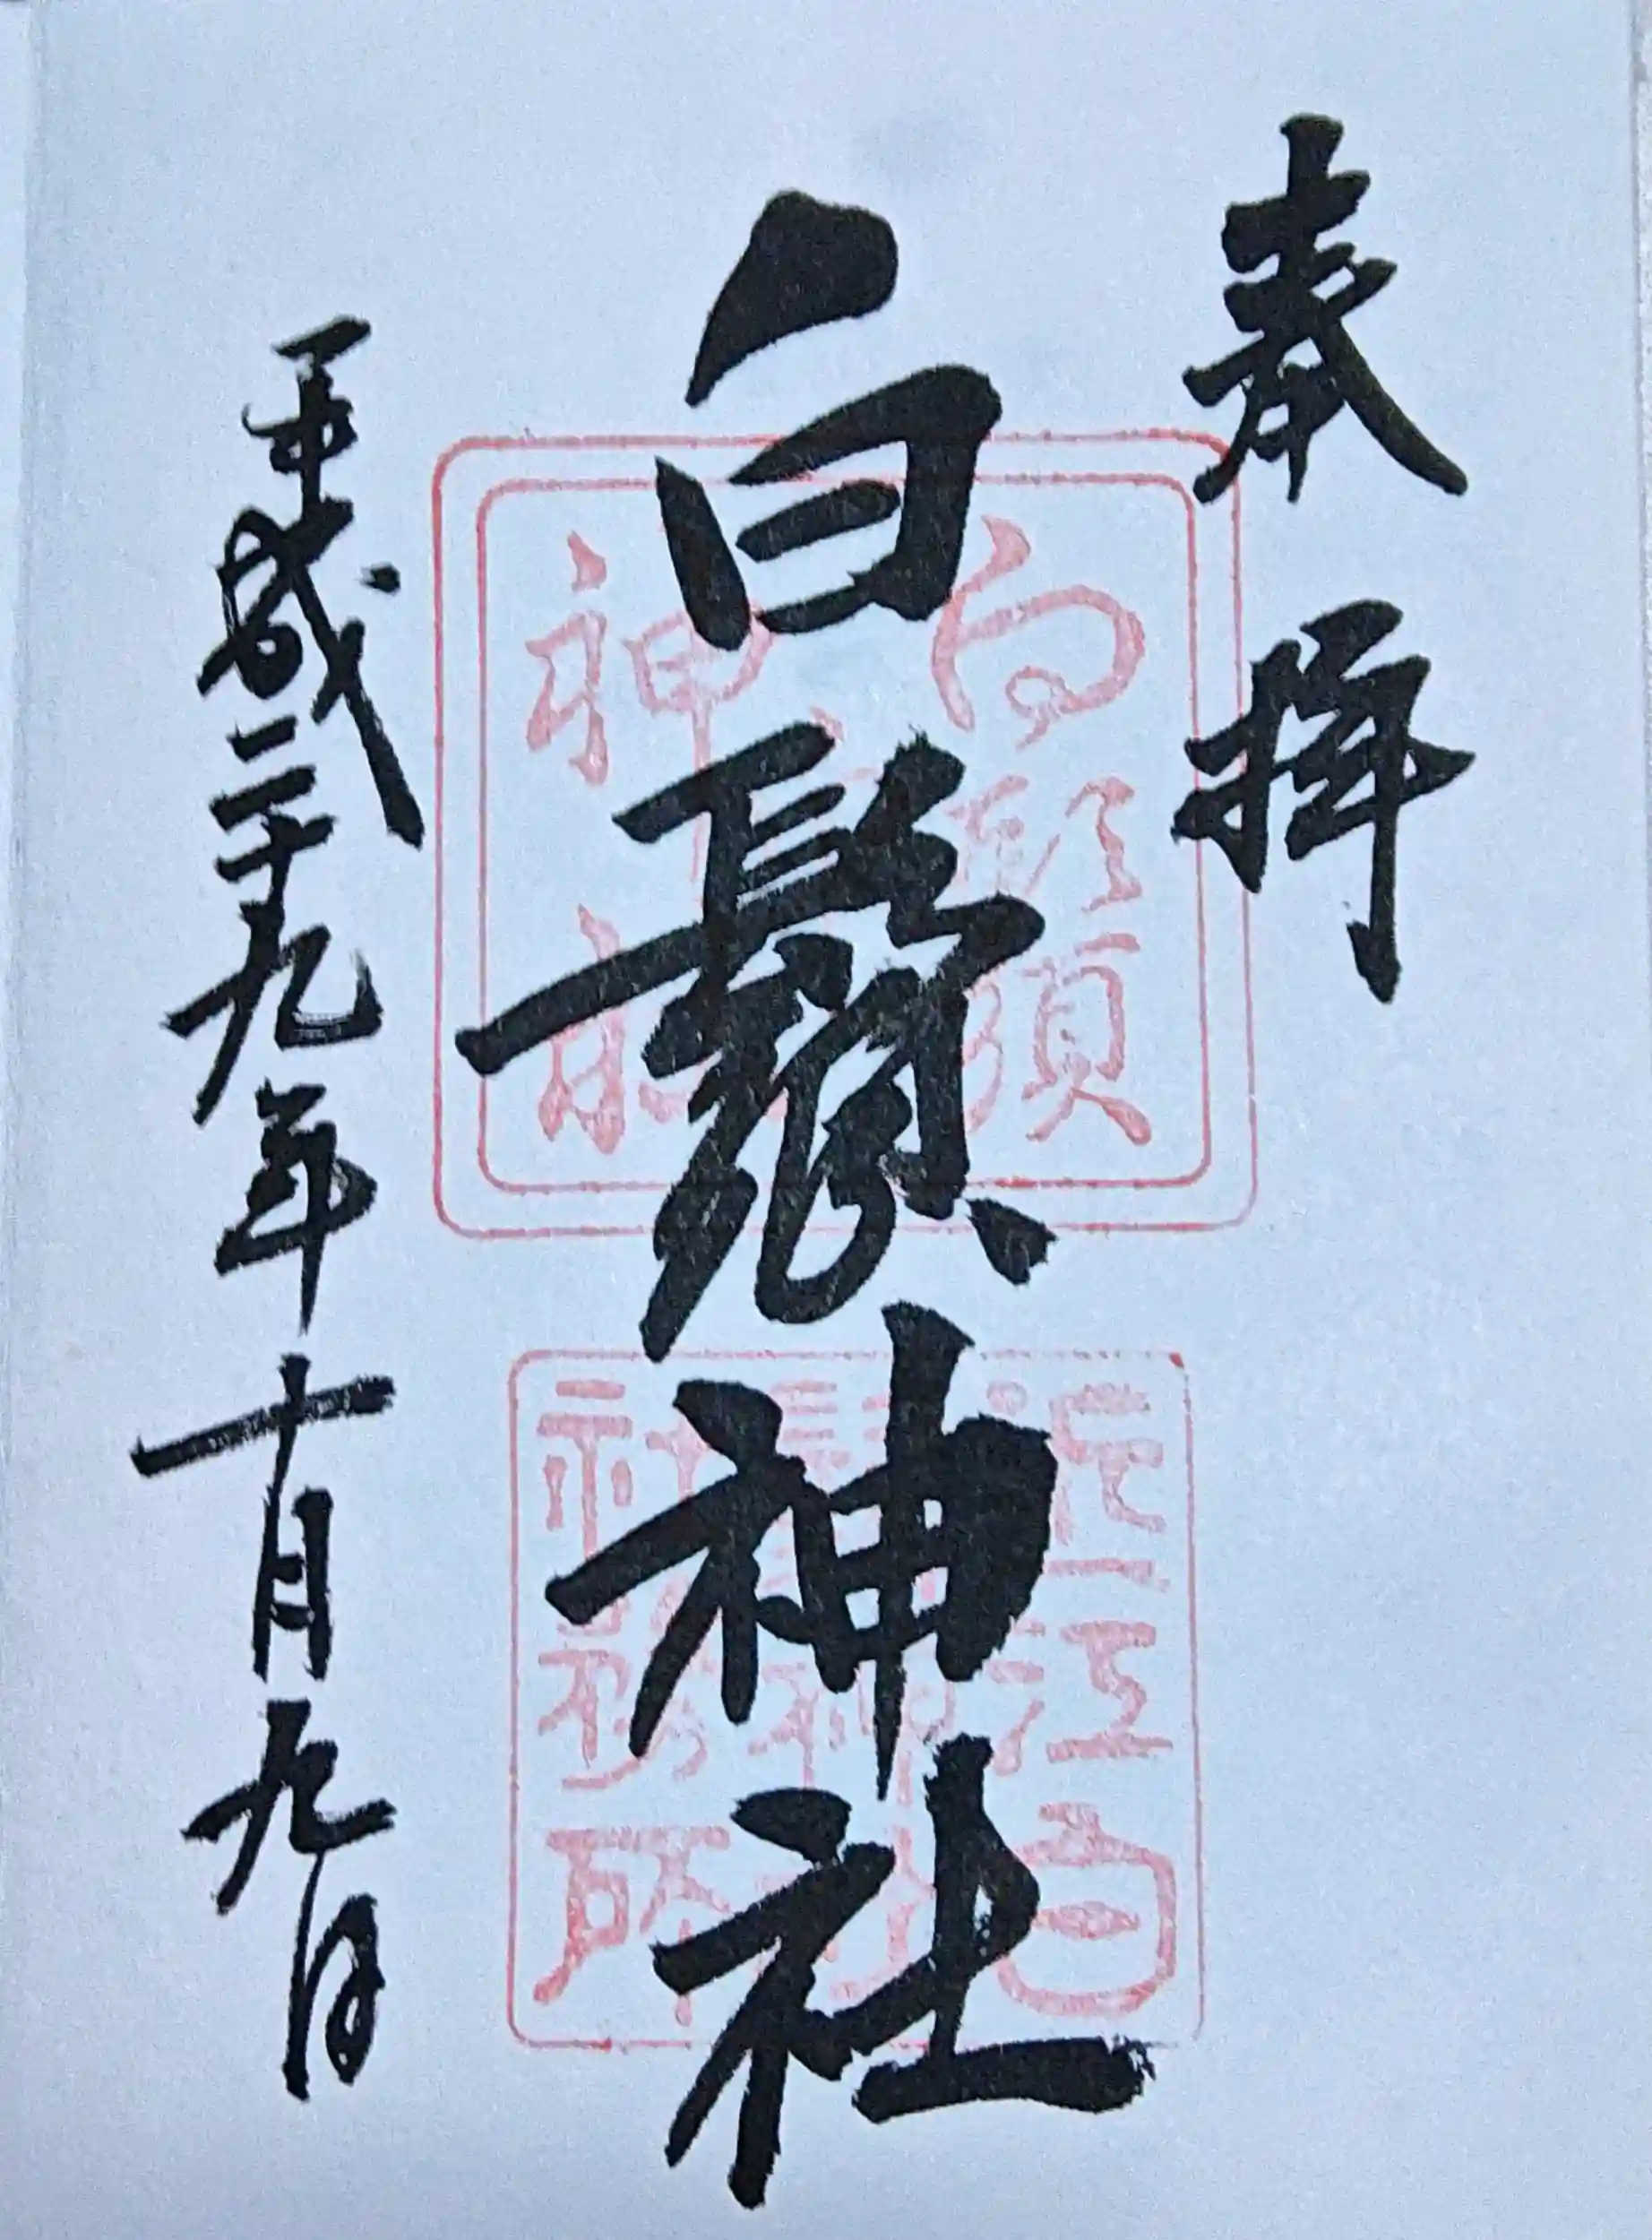 奉拝
白鬚神社
白鬚
神社
近江白
鬚神社
社務所
平成二十九年十月九日